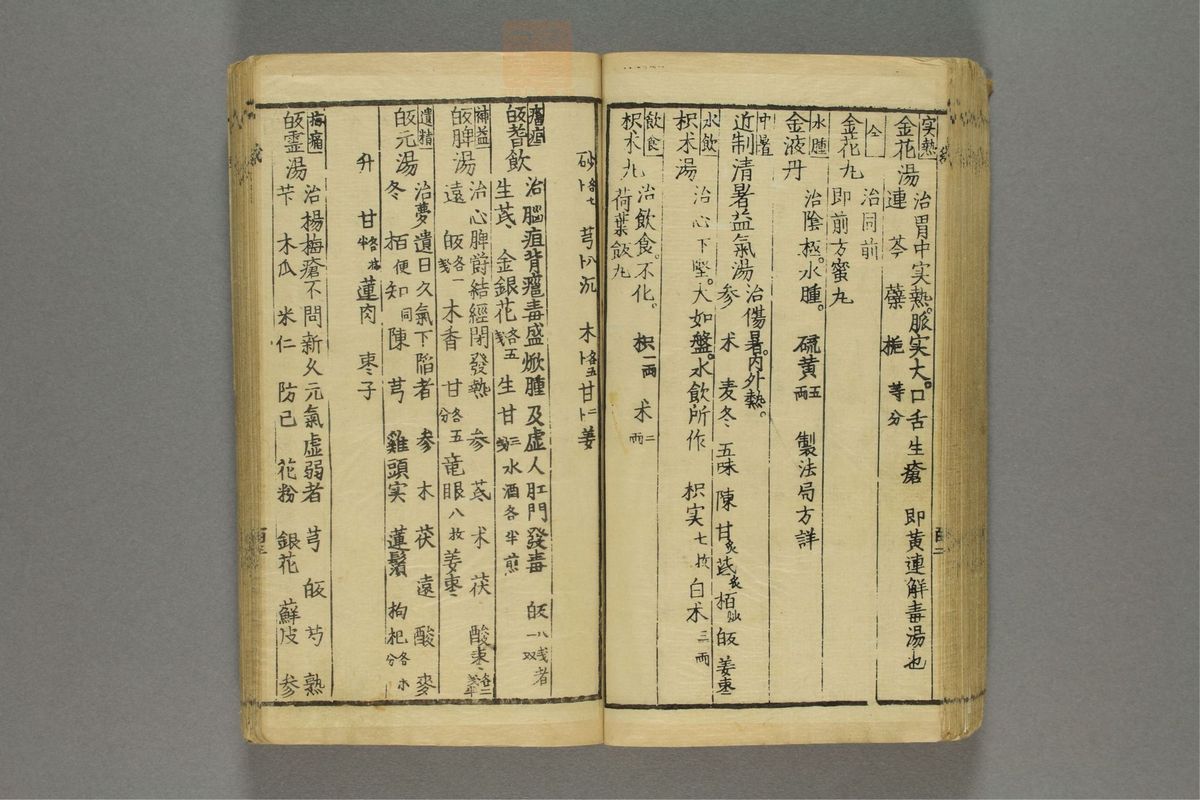 実熱
金花湯 治胃中実熱。脈実大。口舌生瘡 即黄連解毒湯也
連 芩 蘗 梔 等分
仝
金花丸 治同前
即前方蜜丸
水腫
金液丹 治陰極。水腫。 硫黄五両 製法局方詳
中暑
近制清暑益氣湯 治傷暑。内外熱。
参 术 麦冬 五味 陳 甘炙 芪炙 栢 皈 姜枣
水飲
枳术湯 治心下堅。大如盤。水飲所作 枳実七枚 白术三両
飲食
枳术丸 治飲食。不化。 枳一両 术二両
荷葉飯丸
砂 各七 芎 八 沉 木 各五 甘二 姜
皈耆飲 治腦疽背癰毒盛焮腫及虚人肛門發毒 皈 八 者
生芪 金銀花各五 生甘三 水酒各半煎
補益
皈脾湯 治心脾欝結經閉發熱 参 芪 术 茯 酸枣各二
遠 皈各一 木香 甘各五分 竜眼八枚 姜枣
遺精
皈元湯 治夢遺日久氣下陷者 参 木 茯 遠 酸 麥
冬 栢 便 知同 陳 芎 雞頭実 蓮鬚 拘杞各
升 甘 蓮肉 枣子
皈霊湯 治楊梅瘡不問新久元氣虚弱者 芎 皈 芍 熟
苄 木瓜 米仁 防已 花粉 銀花 蘇皮 参